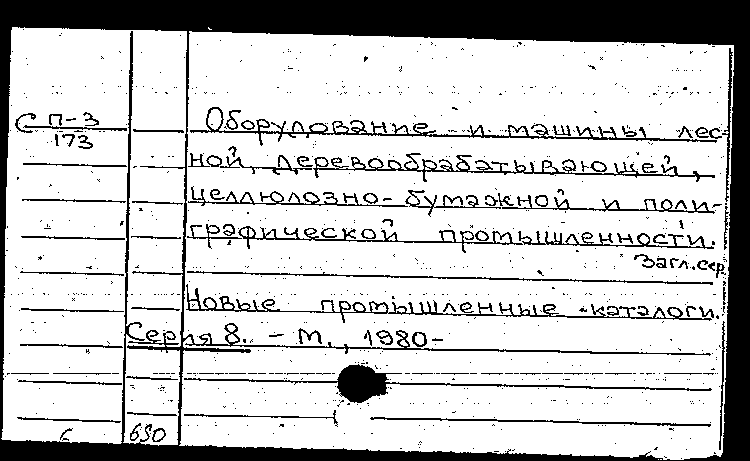 С П-3
173
Оборудование и машины лес-
ной, деревообрабатывающей,
целлюлозно-бумажной и поли-
графической промышленности.
Загл.сер.
Новые промышленные каталоги.
Серия 8. – М., 1980–
6 690